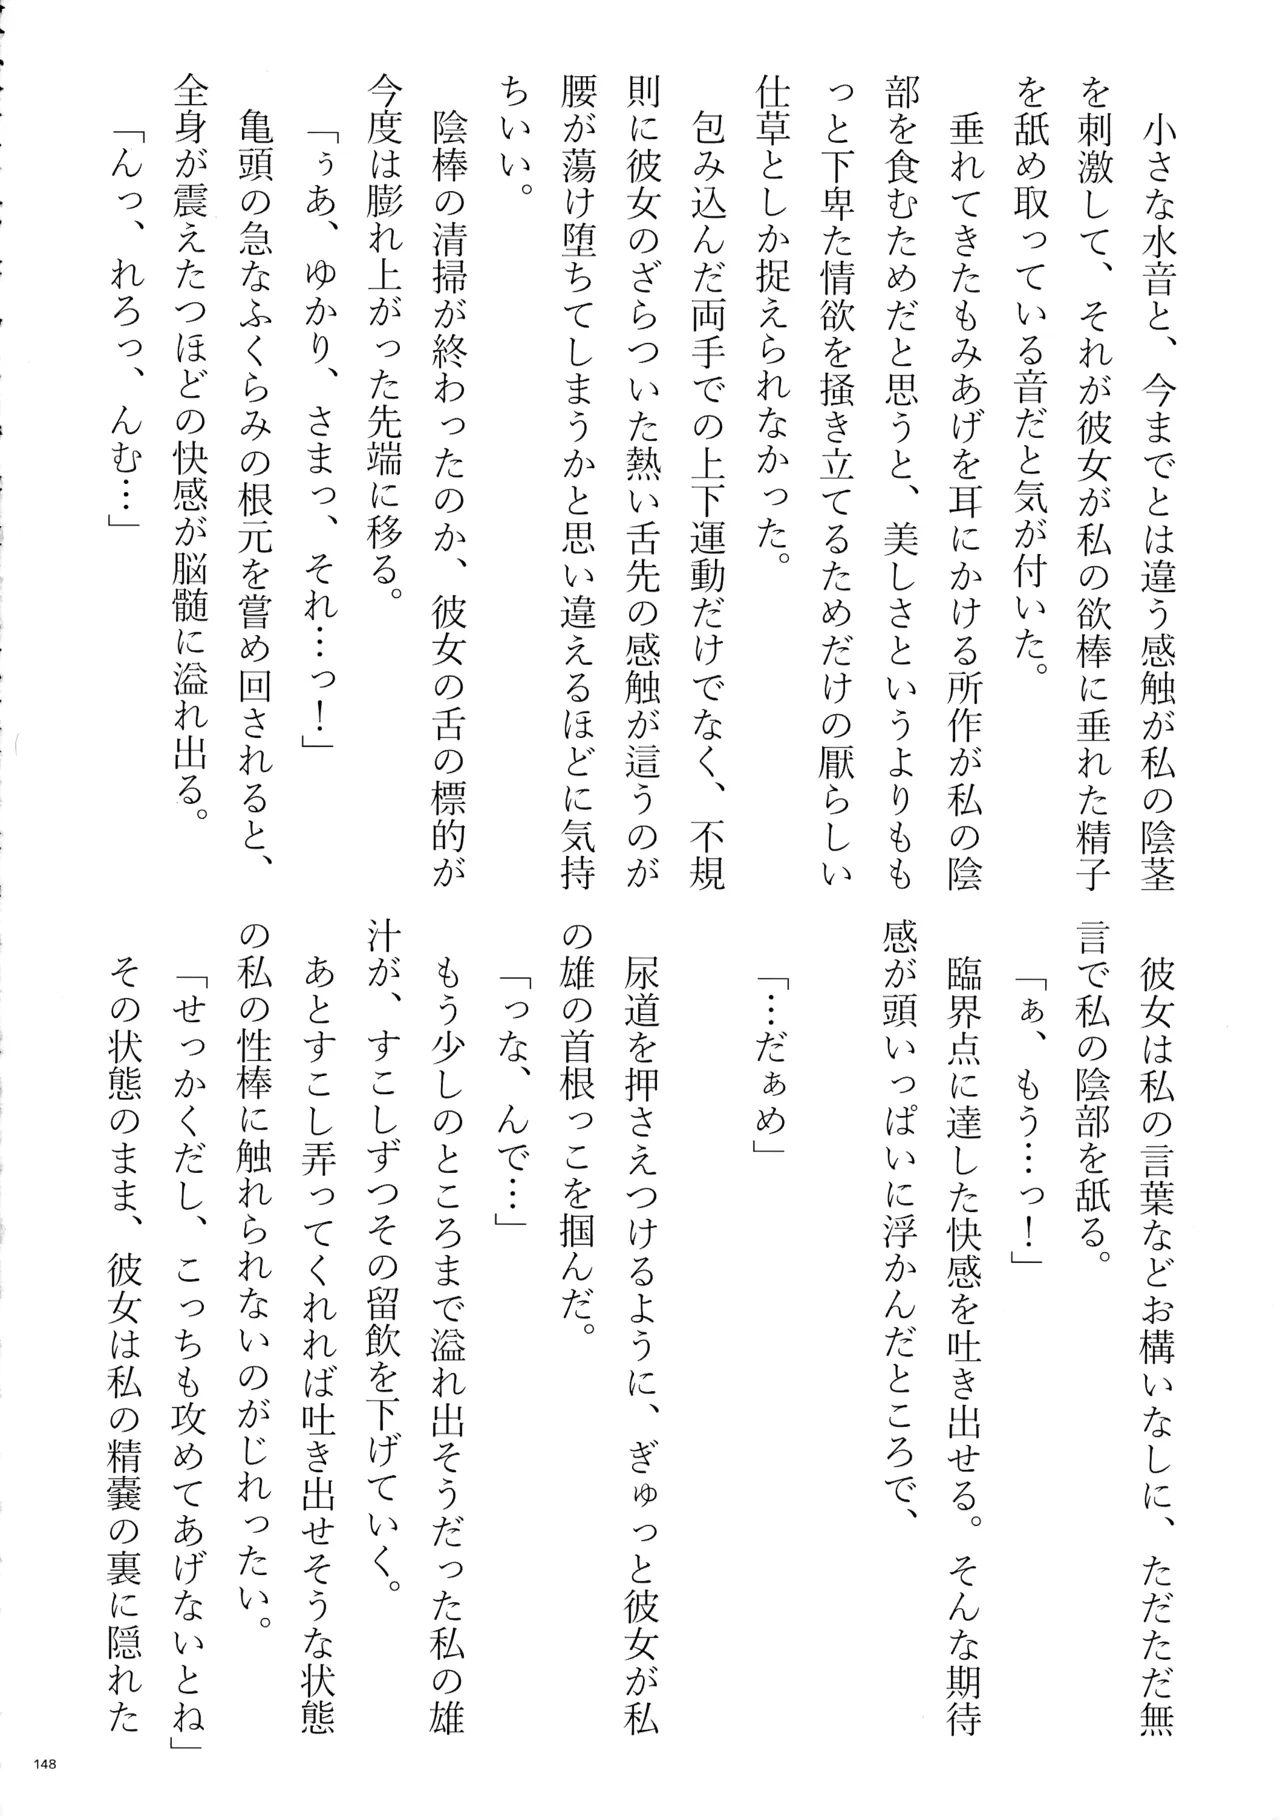 小さな水音と、今までとは違う感触が私の陰茎
を刺激して、それが彼女が私の欲棒に垂れた精子
を舐め取っている音だと気が付いた。
垂れてきたもみあげを耳にかける所作が私の陰
部を食むためだと思うと、美しさというよりもも
っと下卑た情欲を掻き立てるためだけの厭らしい
仕草としか捉えられなかった。
包み込んだ両手での上下運動だけでなく、不規
則に彼女のざらついた熱い舌先の感触が這うのが
腰が蕩け堕ちてしまうかと思い違えるほどに気持
ちいい。
陰棒の清掃が終わったのか、彼女の舌の標的が
今度は膨れ上がった先端に移る。
「ぅあ、ゆかり、さまっ、それ…っ！」
亀頭の急なふくらみの根元を嘗め回されると、
全身が震えたつほどの快感が脳髄に溢れ出る。
「んっ、れろっ、んむ…」
彼女は私の言葉などお構いなしに、ただただ無
言で私の陰部を舐る。
「ぁ、もう…っ！」
臨界点に達した快感を吐き出せる。そんな期待
感が頭いっぱいに浮かんだところで、
「…だぁめ」
尿道を押さえつけるように、ぎゅっと彼女が私
の雄の首根っこを掴んだ。
「っな、んで…」
もう少しのところまで溢れ出そうだった私の雄
汁が、すこしずつその留飲を下げていく。
あとすこし弄ってくれれば吐き出せそうな状態
の私の性棒に触れられないのがじれったい。
「せっかくだし、こっちも攻めてあげないとね」
その状態のまま、彼女は私の精嚢の裏に隠れた
148